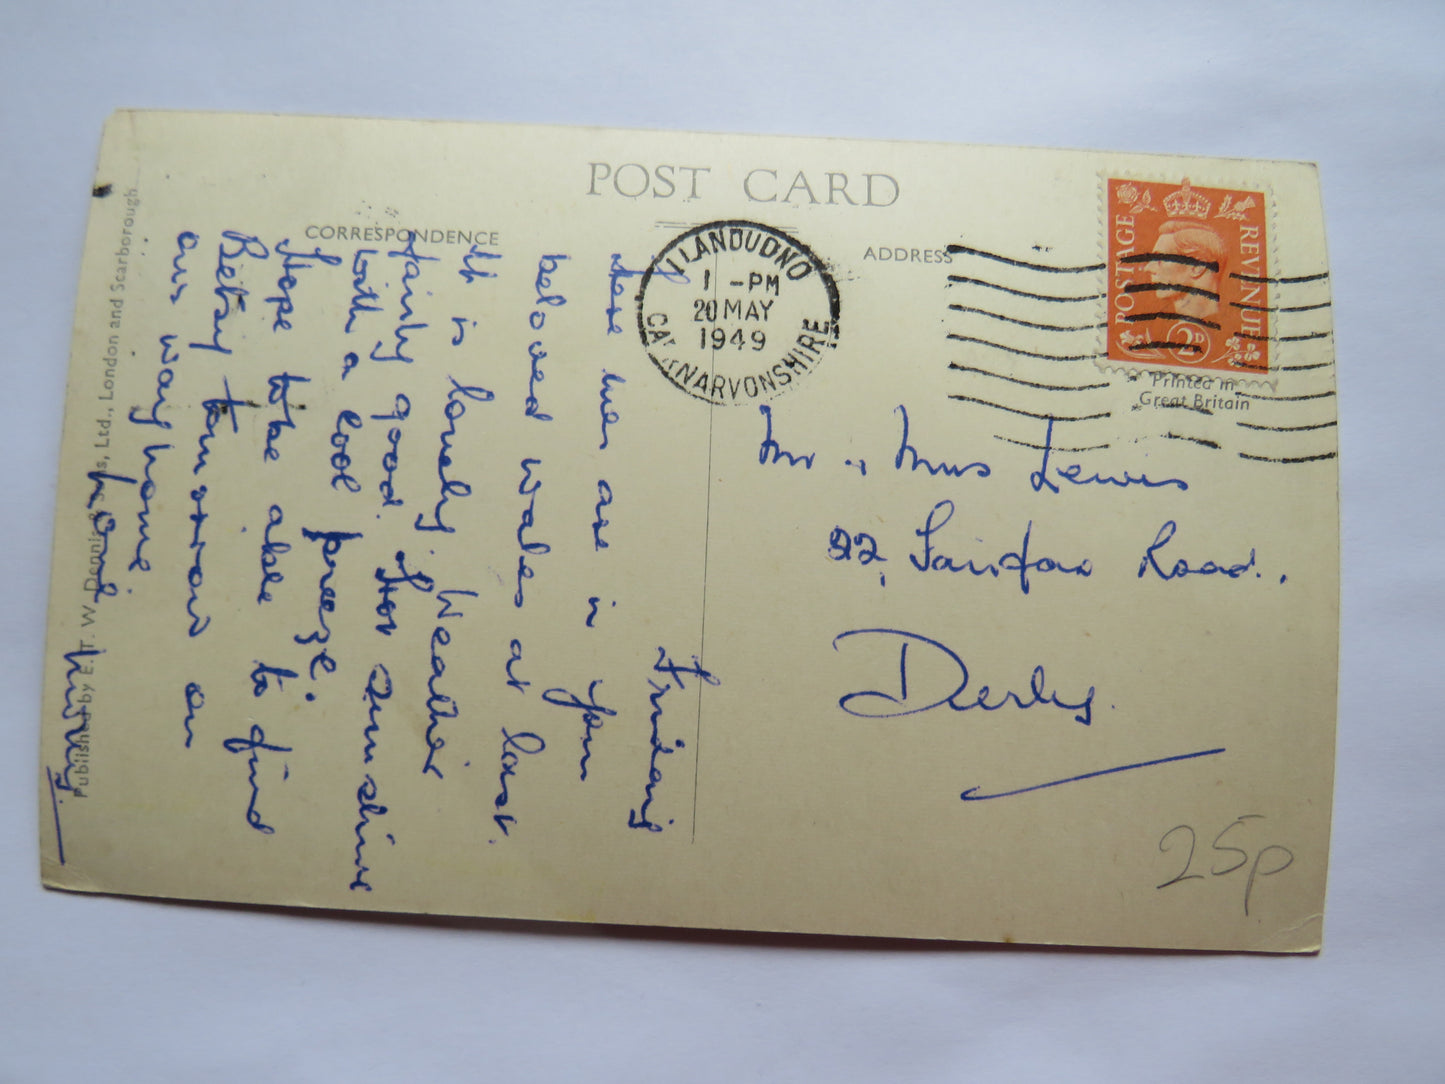 POST CARD
CORRESPONDENCE
ADDRESS
LLANDUDNO
1 - PM
20 MAY
1949
CAERNARVONSHIRE
POSTAGE
REVENUE
2D
Printed in
Great Britain
Friday
Here we are in your
beloved Wales at last.
It is lovely. Weather
fairly good. Hot sunshine
with a cool breeze.
Hope to be able to find
Betsy tomorrow on
our way home.
Love
Mr & Mrs Lewis
22, Fairfax Road.,
Derby.
25p
Published by E. T. W. Dennis & Sons, Ltd., London and Scarborough